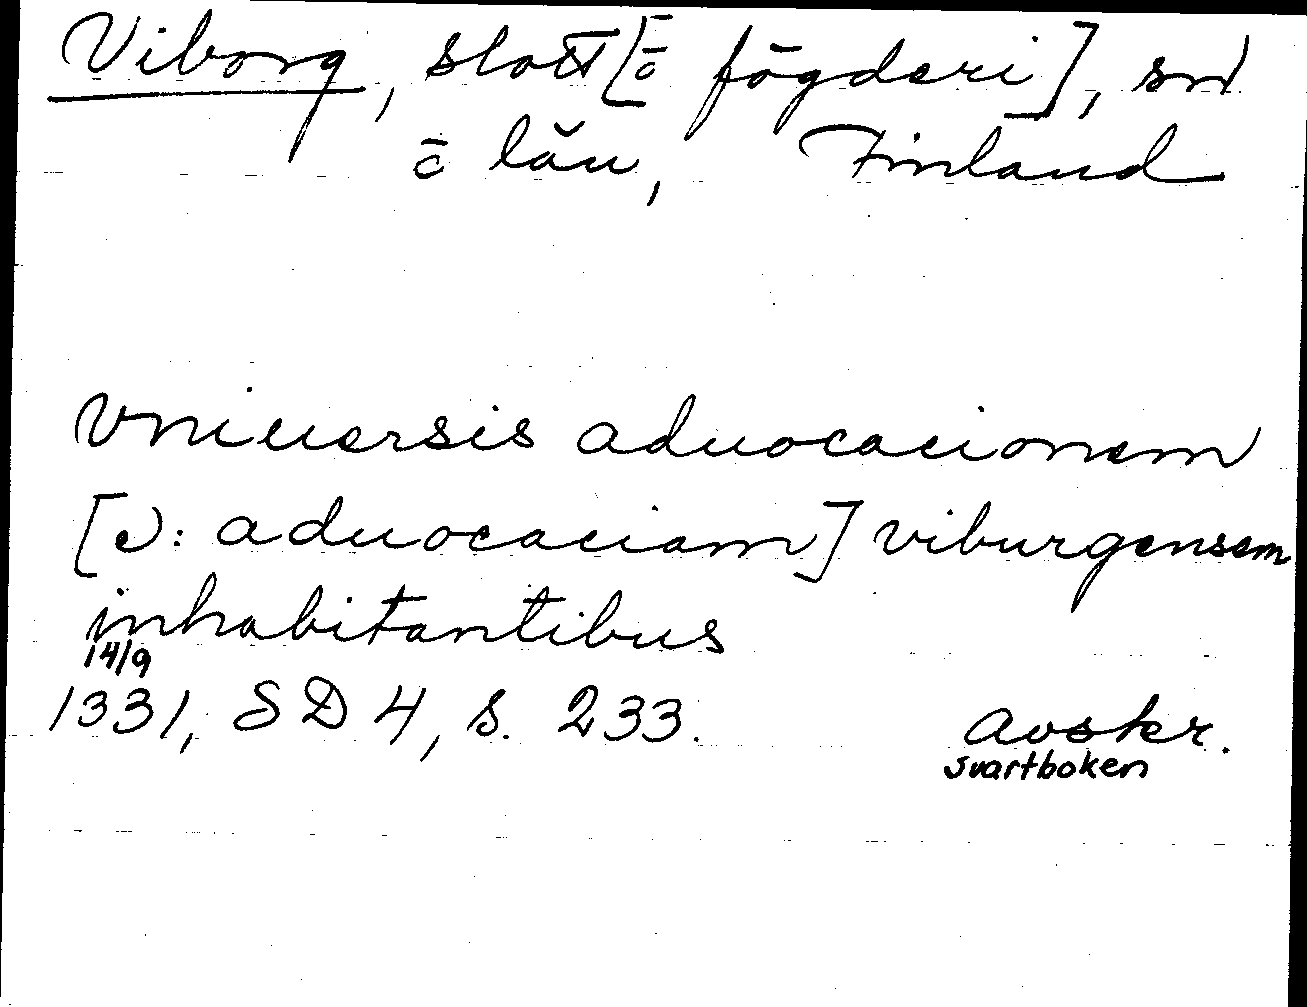 Viborg, slott [o fögderi], sn
o län, Finland
Vniuersis aduocacionem
[ɔ: aduocaciam] viburgensem
inhabitantibus
14/9
1331, SD 4, s. 233. Avskr.
svartboken